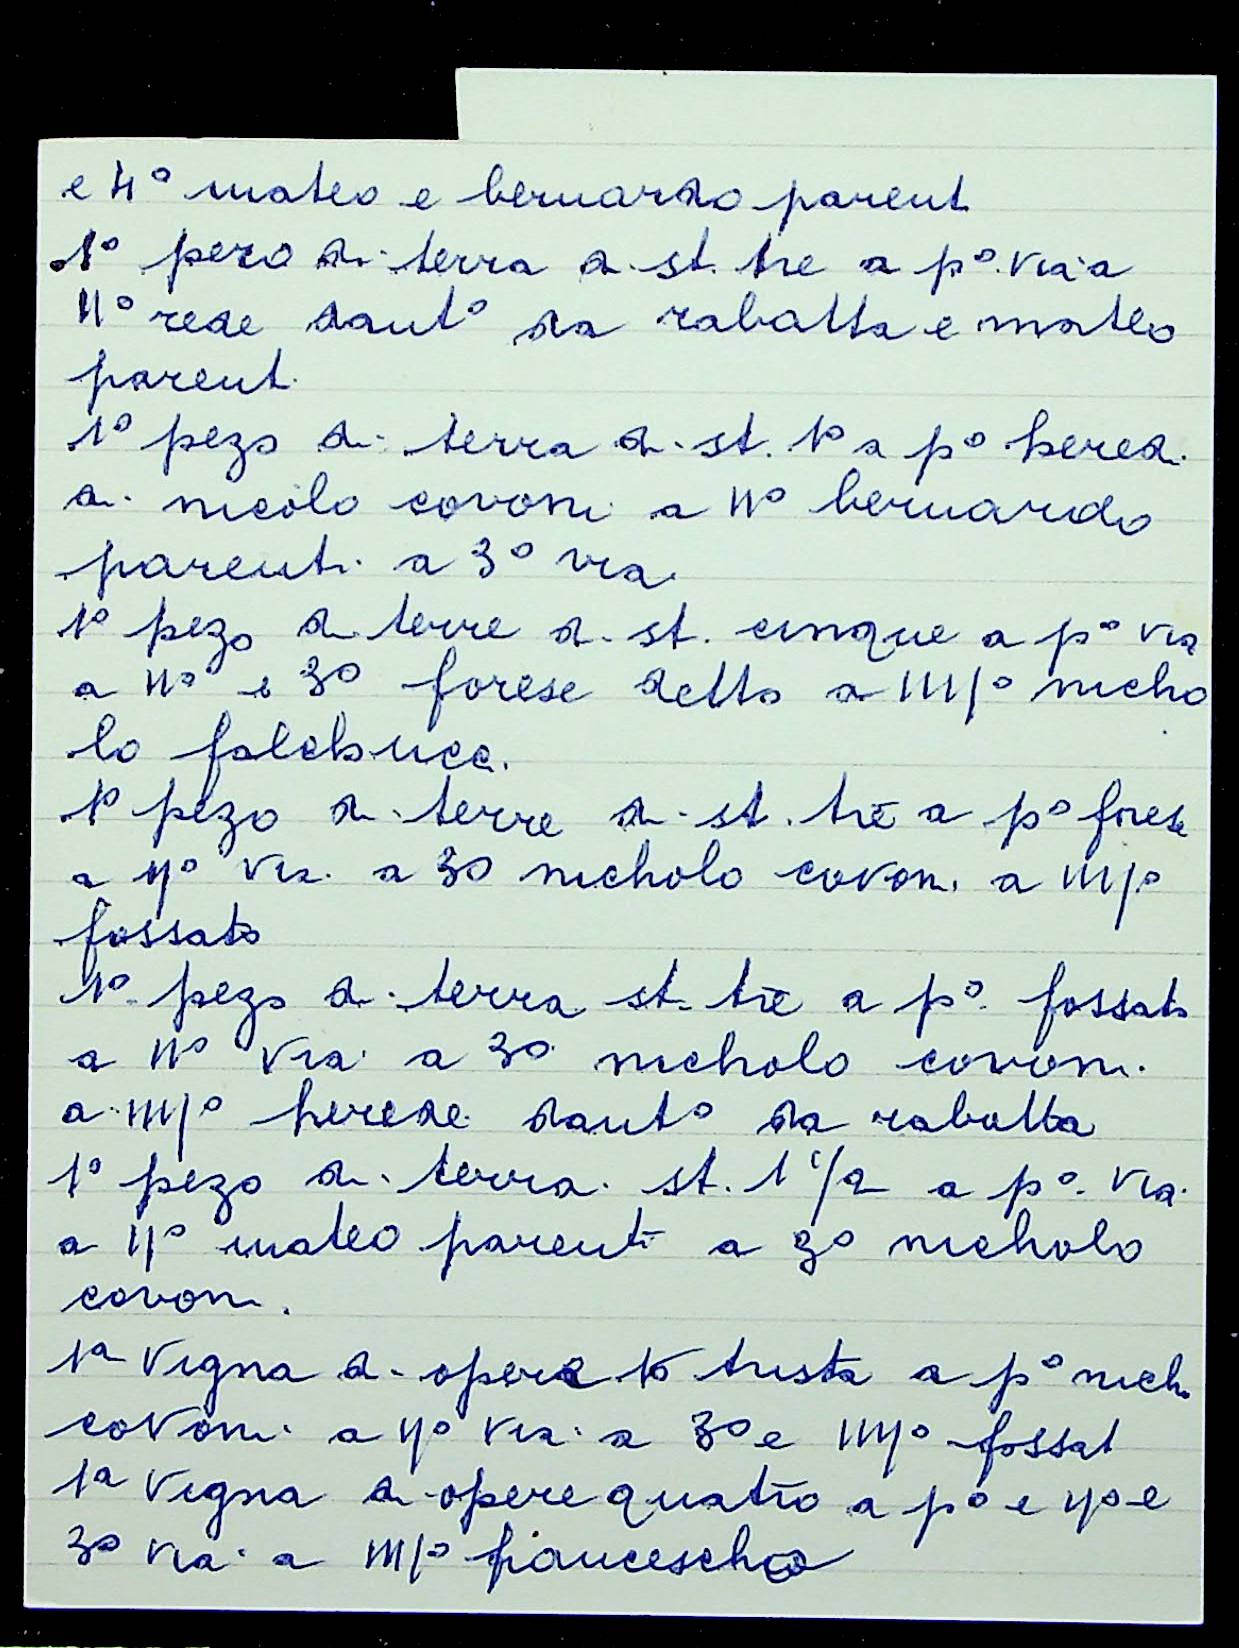 e 4º mateo e bernardo parent
1º pezo di terra di st. tre a pº via a
IIº rede dantº da rabatta e mateo
parent.
1º pezo di terra di st. 1º a pº hered.
di nicolo covoni a IIº bernardo
parenti. a 3º via.
1º pezo di terre di st. cinque a pº via
a IIº e 3º forese detto a IIIJº nicho
lo falchucci.
1º pezo di terre di st. trē a pº forese
a IJº via. a 3º nicholo covoni a IIIJº
fossato
1º pezo di terra st. trē a pº. fossato
a IIº via. a 3º nicholo covoni.
a IIIJº herede dantº da rabatta
1º pezo di terra. st. 1 1/2 a pº. via.
a IJº mateo parenti a 3º nicholo
covoni.
1ª vigna di opera 1º trista a pº nich.
covoni. a IJº via. a 3º e IIIJº fossat
1ª vigna di opere quatro a pº e IJº e
3º via. a IIIJº francescho